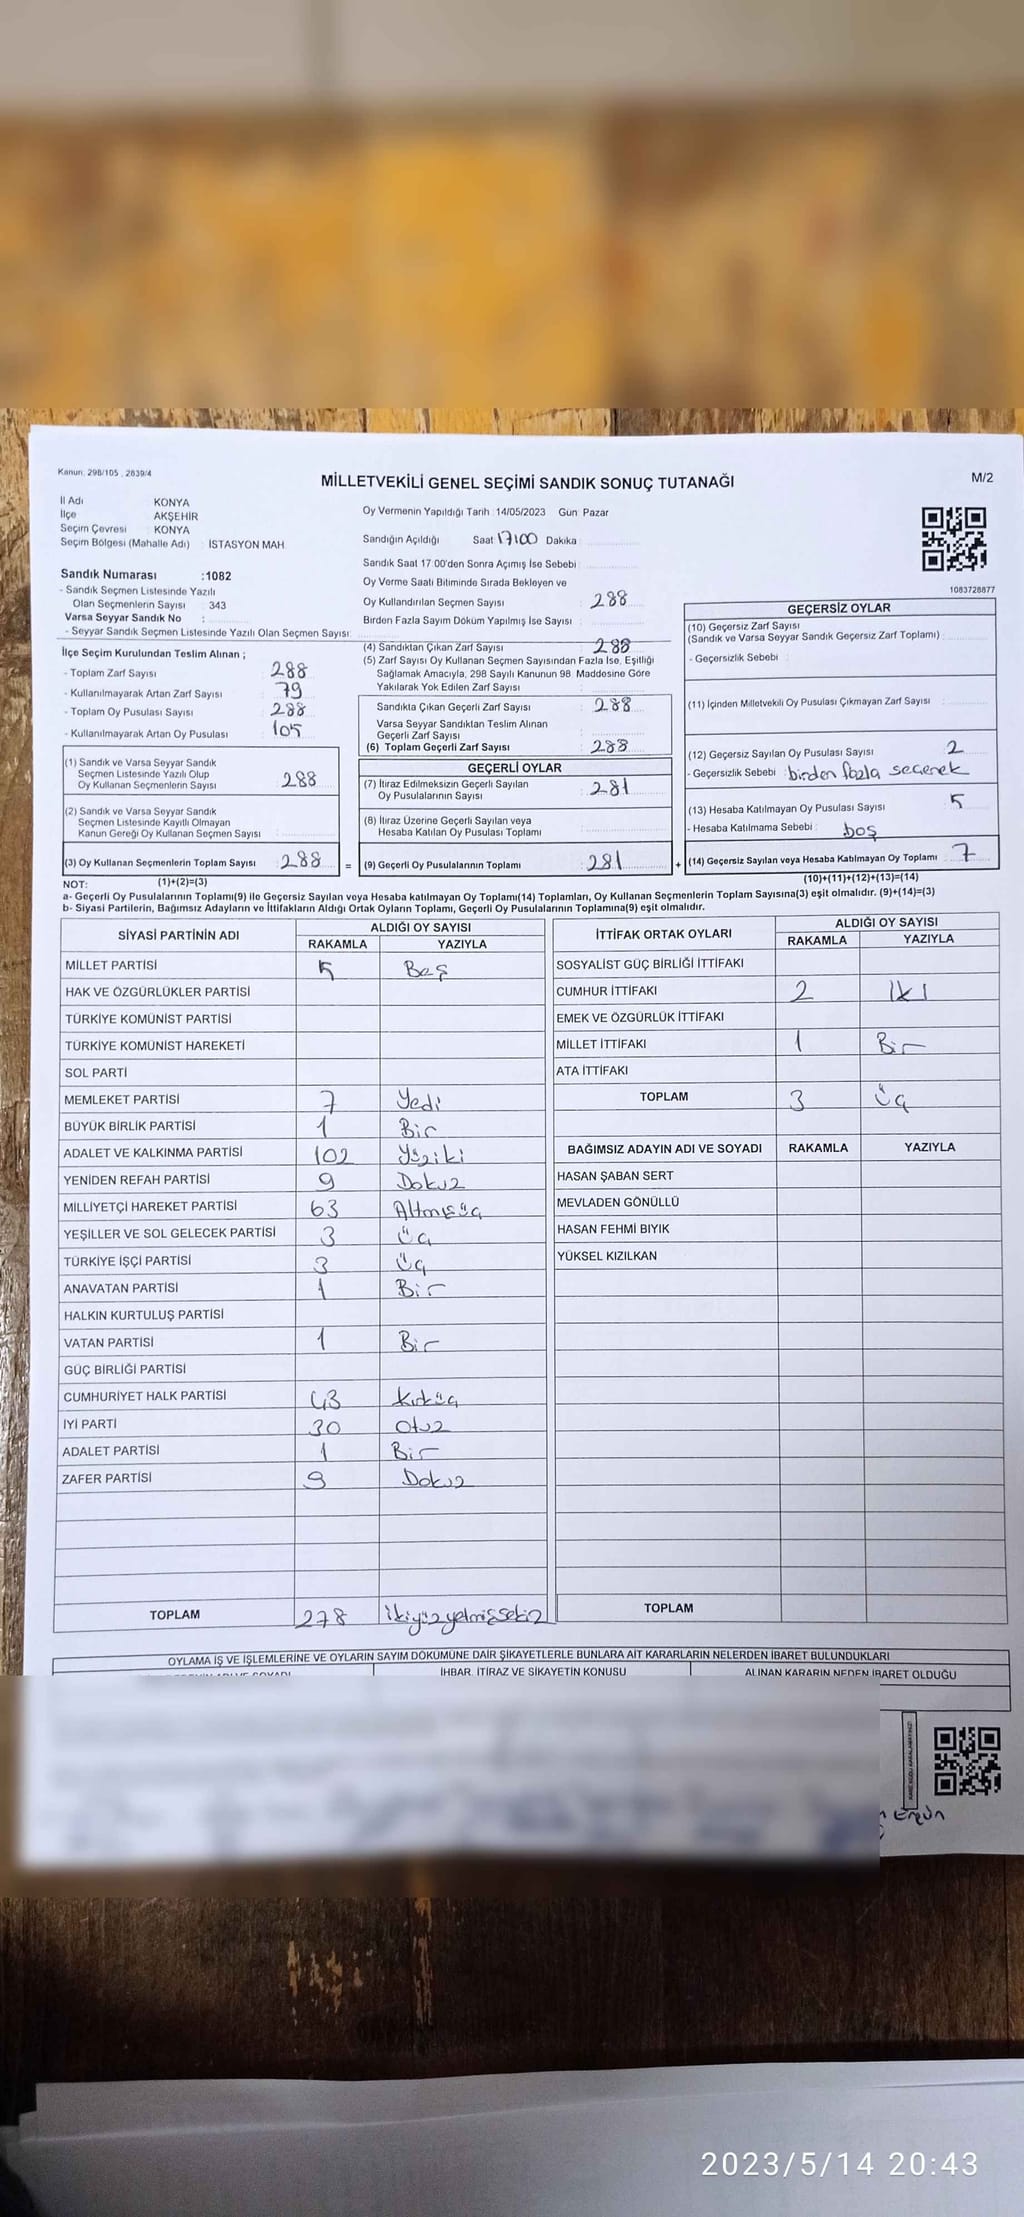 Kanun: 298/105 , 2839/4
MİLLETVEKİLİ GENEL SEÇİMİ SANDIK SONUÇ TUTANAĞI
M/2
İl Adı KONYA
İlçe AKŞEHİR
Seçim Çevresi : KONYA
Seçim Bölgesi (Mahalle Adı) : İSTASYON MAH
Sandık Numarası :1082
- Sandık Seçmen Listesinde Yazılı
Olan Seçmenlerin Sayısı : 343
Varsa Seyyar Sandık No :
- Seyyar Sandık Seçmen Listesinde Yazılı Olan Seçmen Sayısı:
Oy Vermenin Yapıldığı Tarih :14/05/2023 Gün Pazar
Sandığın Açıldığı Saat 17:00 Dakika
Sandık Saat 17 00'den Sonra Açımış İse Sebebi
Oy Verme Saati Bitiminde Sırada Bekleyen ve
Oy Kullandırılan Seçmen Sayısı : 288
Birden Fazla Sayım Döküm Yapılmış İse Sayısı :
1083728877
İlçe Seçim Kurulundan Teslim Alınan ;
- Toplam Zarf Sayısı : 288
- Kullanılmayarak Artan Zarf Sayısı : 79
- Toplam Oy Pusulası Sayısı : 288
- Kullanılmayarak Artan Oy Pusulası : 105
(1) Sandık ve Varsa Seyyar Sandık
Seçmen Listesinde Yazılı Olup
Oy Kullanan Seçmenlerin Sayısı : 288
(2) Sandık ve Varsa Seyyar Sandık
Seçmen Listesinde Kayıtlı Olmayan
Kanun Gereği Oy Kullanan Seçmen Sayısı :
(3) Oy Kullanan Seçmenlerin Toplam Sayısı : 288 =
(4) Sandıktan Çıkan Zarf Sayısı : 288
(5) Zarf Sayısı Oy Kullanan Seçmen Sayısından Fazla İse, Eşitliği
Sağlamak Amacıyla, 298 Sayılı Kanunun 98 Maddesine Göre
Yakılarak Yok Edilen Zarf Sayısı :
Sandıkta Çıkan Geçerli Zarf Sayısı : 288
Varsa Seyyar Sandıktan Teslim Alınan
Geçerli Zarf Sayısı :
(6) Toplam Geçerli Zarf Sayısı : 288
GEÇERLİ OYLAR
(7) İtiraz Edilmeksizin Geçerli Sayılan
Oy Pusulalarının Sayısı : 281
(8) İtiraz Üzerine Geçerli Sayılan veya
Hesaba Katılan Oy Pusulası Toplamı :
(9) Geçerli Oy Pusulalarının Toplamı : 281 +
GEÇERSİZ OYLAR
(10) Geçersiz Zarf Sayısı
(Sandık ve Varsa Seyyar Sandık Geçersiz Zarf Toplamı) :
- Geçersizlik Sebebi :
(11) İçinden Milletvekili Oy Pusulası Çıkmayan Zarf Sayısı :
(12) Geçersiz Sayılan Oy Pusulası Sayısı : 2
- Geçersizlik Sebebi : birden fazla seçenek
(13) Hesaba Katılmayan Oy Pusulası Sayısı : 5
- Hesaba Katılmama Sebebi : boş
(14) Geçersiz Sayılan veya Hesaba Katılmayan Oy Toplamı : 7
NOT: (1)+(2)=(3)
(10)+(11)+(12)+(13)=(14)
a- Geçerli Oy Pusulalarının Toplamı(9) ile Geçersiz Sayılan veya Hesaba katılmayan Oy Toplamı(14) Toplamları, Oy Kullanan Seçmenlerin Toplam Sayısına(3) eşit olmalıdır. (9)+(14)=(3)
b- Siyasi Partilerin, Bağımsız Adayların ve İttifakların Aldığı Ortak Oyların Toplamı, Geçerli Oy Pusulalarının Toplamına(9) eşit olmalıdır.
SİYASİ PARTİNİN ADI ALDIĞI OY SAYISI
RAKAMLA YAZIYLA
MİLLET PARTİSİ 5 Beş
HAK VE ÖZGÜRLÜKLER PARTİSİ
TÜRKİYE KOMÜNİST PARTİSİ
TÜRKİYE KOMÜNİST HAREKETİ
SOL PARTİ
MEMLEKET PARTİSİ 7 Yedi
BÜYÜK BİRLİK PARTİSİ 1 Bir
ADALET VE KALKINMA PARTİSİ 102 Yüziki
YENİDEN REFAH PARTİSİ 9 Dokuz
MİLLİYETÇİ HAREKET PARTİSİ 63 Altmışüç
YEŞİLLER VE SOL GELECEK PARTİSİ 3 üç
TÜRKİYE İŞÇİ PARTİSİ 3 üç
ANAVATAN PARTİSİ 1 Bir
HALKIN KURTULUŞ PARTİSİ
VATAN PARTİSİ 1 Bir
GÜÇ BİRLİĞİ PARTİSİ
CUMHURİYET HALK PARTİSİ 43 kırküç
İYİ PARTİ 30 Otuz
ADALET PARTİSİ 1 Bir
ZAFER PARTİSİ 9 Dokuz
TOPLAM 278 ikiyüzyetmişsekiz
İTTİFAK ORTAK OYLARI ALDIĞI OY SAYISI
RAKAMLA YAZIYLA
SOSYALİST GÜÇ BİRLİĞİ İTTİFAKI
CUMHUR İTTİFAKI 2 İki
EMEK VE ÖZGÜRLÜK İTTİFAKI
MİLLET İTTİFAKI 1 Bir
ATA İTTİFAKI
TOPLAM 3 üç
BAĞIMSIZ ADAYIN ADI VE SOYADI RAKAMLA YAZIYLA
HASAN ŞABAN SERT
MEVLADEN GÖNÜLLÜ
HASAN FEHMİ BIYIK
YÜKSEL KIZILKAN
TOPLAM
OYLAMA İŞ VE İŞLEMLERİNE VE OYLARIN SAYIM DÖKÜMÜNE DAİR ŞİKAYETLERLE BUNLARA AİT KARARLARIN NELERDEN İBARET BULUNDUKLARI
İHBAR, İTİRAZ VE ŞİKAYETİN KONUSU ALINAN KARARIN NEDEN İBARET OLDUĞU
Ergün
2023/5/14 20:43